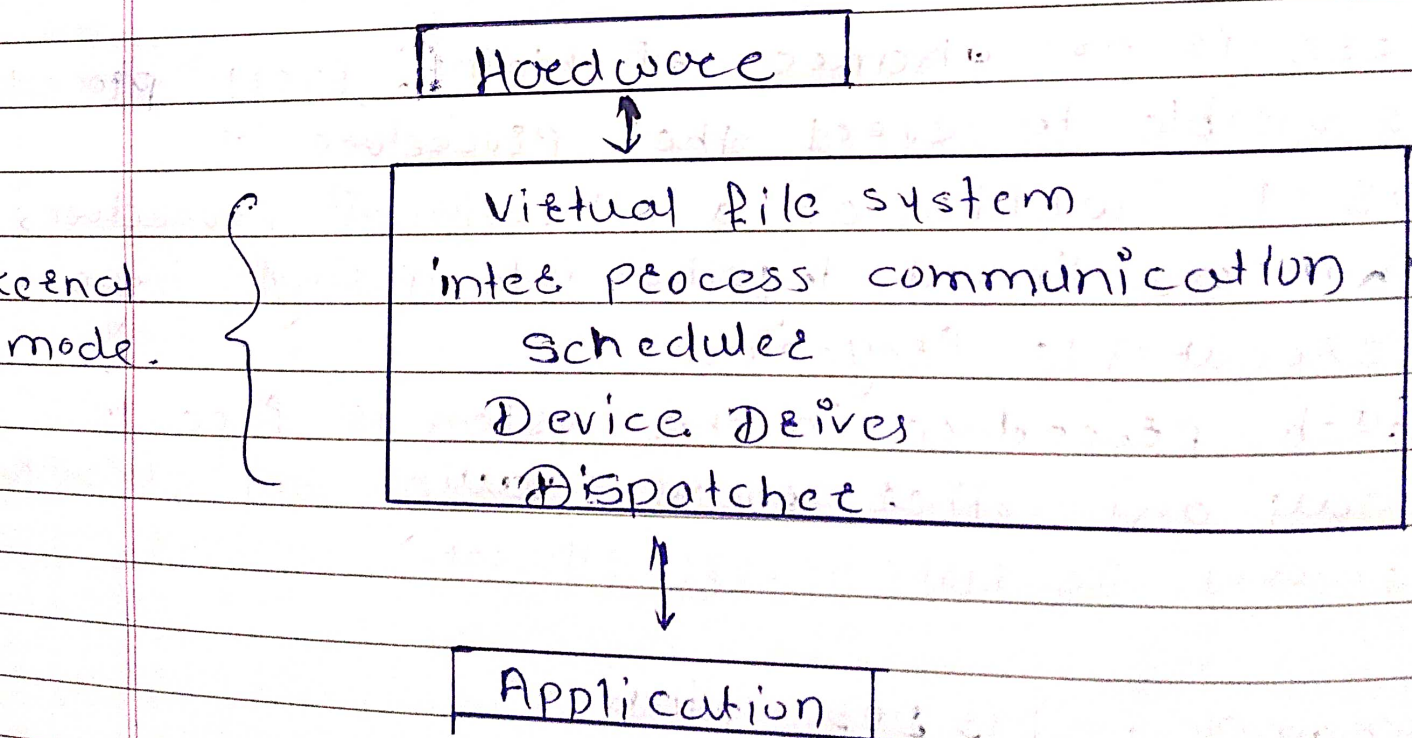 Hardware
virtual file system
kernal
inter process communication
mode.
Scheduler
Device Drives
Dispatcher.
Application